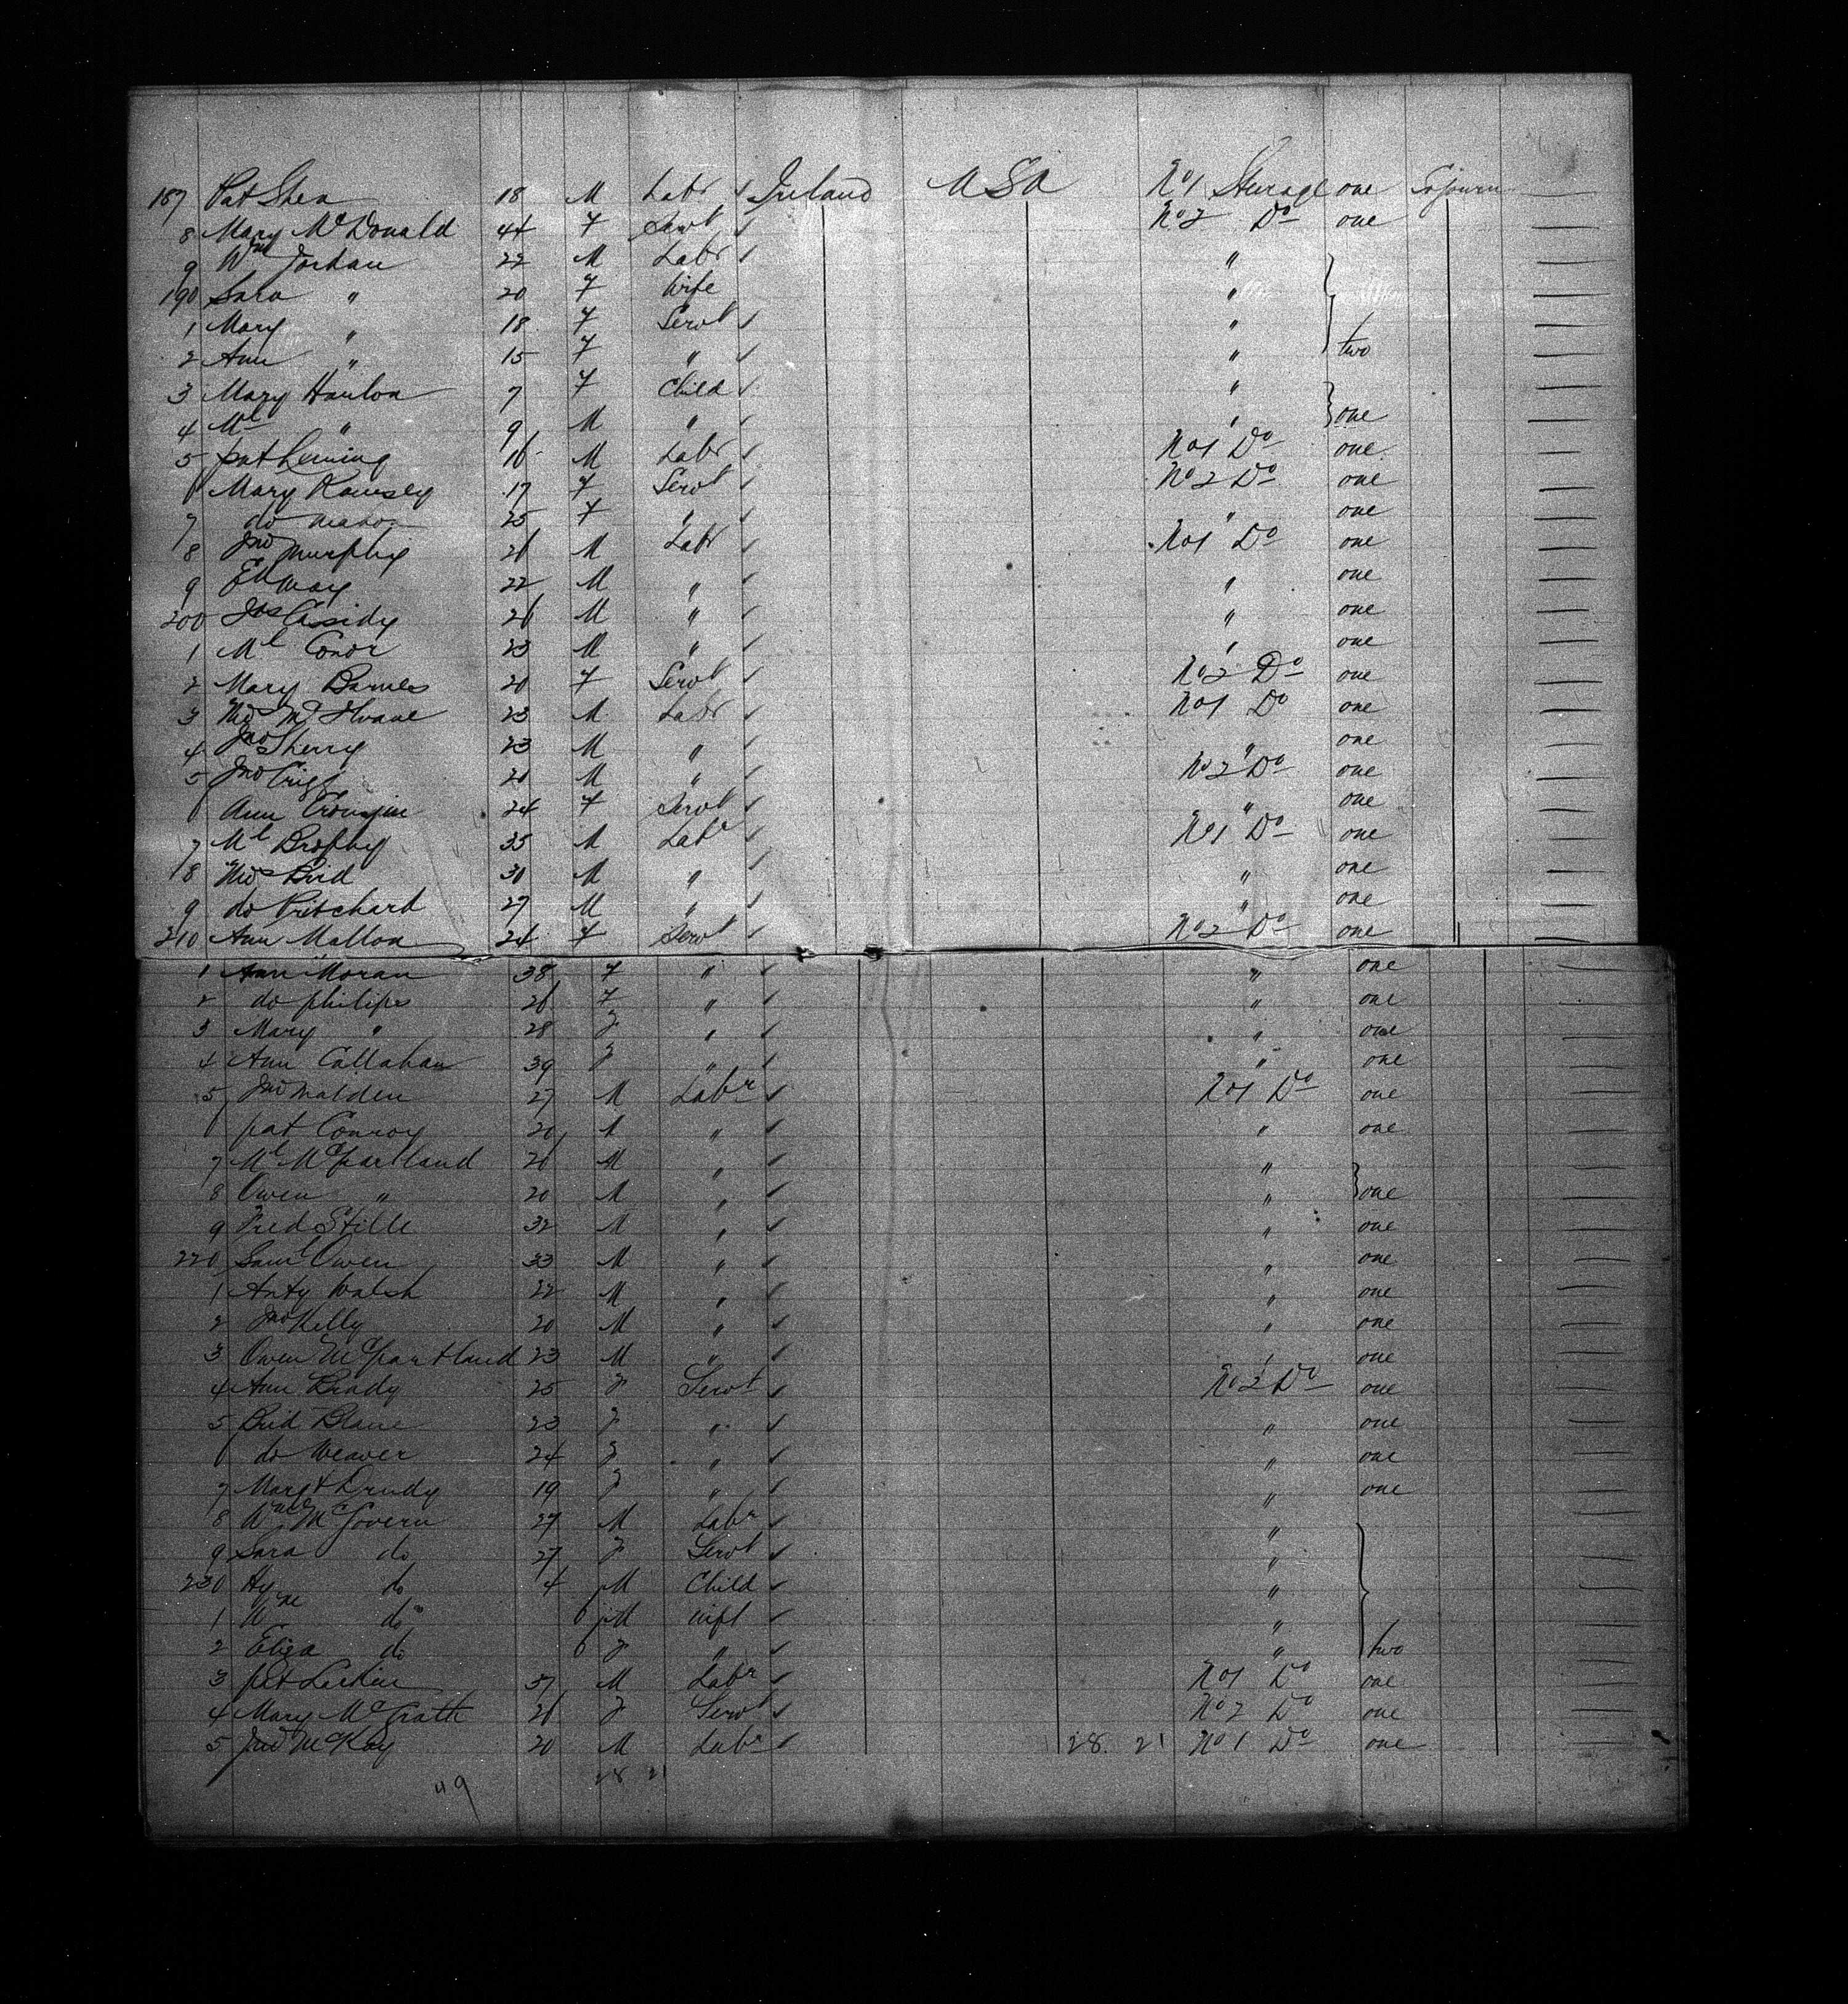 187 Pat Shea 18 M Labr ✓ Ireland USA No 1 Steerage one Sojourn
8 Mary McDonald 44 F Servt ✓ No 2 Do one
9 Wm Jordan 22 M Labr ✓ "
190 Sara " 20 F Wife "
1 Mary " 18 F Servt ✓ "
2 Ann " 15 F " ✓ " two
3 Mary Hanlon 7 F Child ✓ "
4 Ml " 9 M " ✓ " one
5 pat 16 M Labr ✓ No 1 Do one
6 Mary Ramsey 17 F Servt ✓ No 2 Do one
7 do 25 F " ✓ " one
8 Jno Murphy 26 M Labr ✓ No 1 Do one
9 Ed May 22 M " ✓ " one
200 Jas Cassidy 26 M " ✓ " one
1 Ml Conor 23 M " ✓ " one
2 Mary Barnes 20 F Servt ✓ No 2 Do one
3 Thos 23 M Labr ✓ No 1 Do one
4 Jno Sherry 23 M " ✓ " one
5 Jno 20 M " ✓ No 2 Do one
6 Ann 24 F Servt ✓ " one
7 Ml Brophy 35 M Labr ✓ No 1 Do one
8 Thos Bird 30 M " ✓ " one
9 do Pritchard 27 M " ✓ " one
210 Ann Mallon 24 F Servt ✓ No 2 Do one
1 Ann Moran 38 F " ✓ " one
2 do philips 26 F " ✓ " one
3 Mary " 28 F " ✓ " one
4 Ann Callahan 39 F " ✓ " one
5 Jno Malden 27 M Labr ✓ No 1 Do one
6 pat Conroy 20 M " ✓ " one
7 Ml McPartland 20 M " ✓ "
8 Owen " 20 M " ✓ " one
9 Fred Stille 32 M " ✓ " one
220 Saml Owen 33 M " ✓ " one
1 Anty Walsh 22 M " ✓ " one
2 Jno Kelly 20 M " ✓ " one
3 Owen McPartland 23 M " ✓ " one
4 Ann Brady 25 F Servt ✓ No 2 Do one
5 Brid Blane 23 F " ✓ " one
6 do Weaver 24 F " ✓ " one
7 Margt Drudy 19 F " ✓ " one
8 Wm McGovern 27 M Labr ✓ "
9 Sara do 27 F Servt ✓ "
230 Hy do 4 M Child ✓ "
1 Wm do 6 M inft ✓ "
2 Eliza do 6 F " ✓ " two
3 pat Larkin 37 M Labr ✓ No 1 Do one
4 Mary McGrath 26 F Servt ✓ No 2 Do one
5 Jno McKay 20 M Labr ✓ 28 21 No 1 Do one
49 28 21